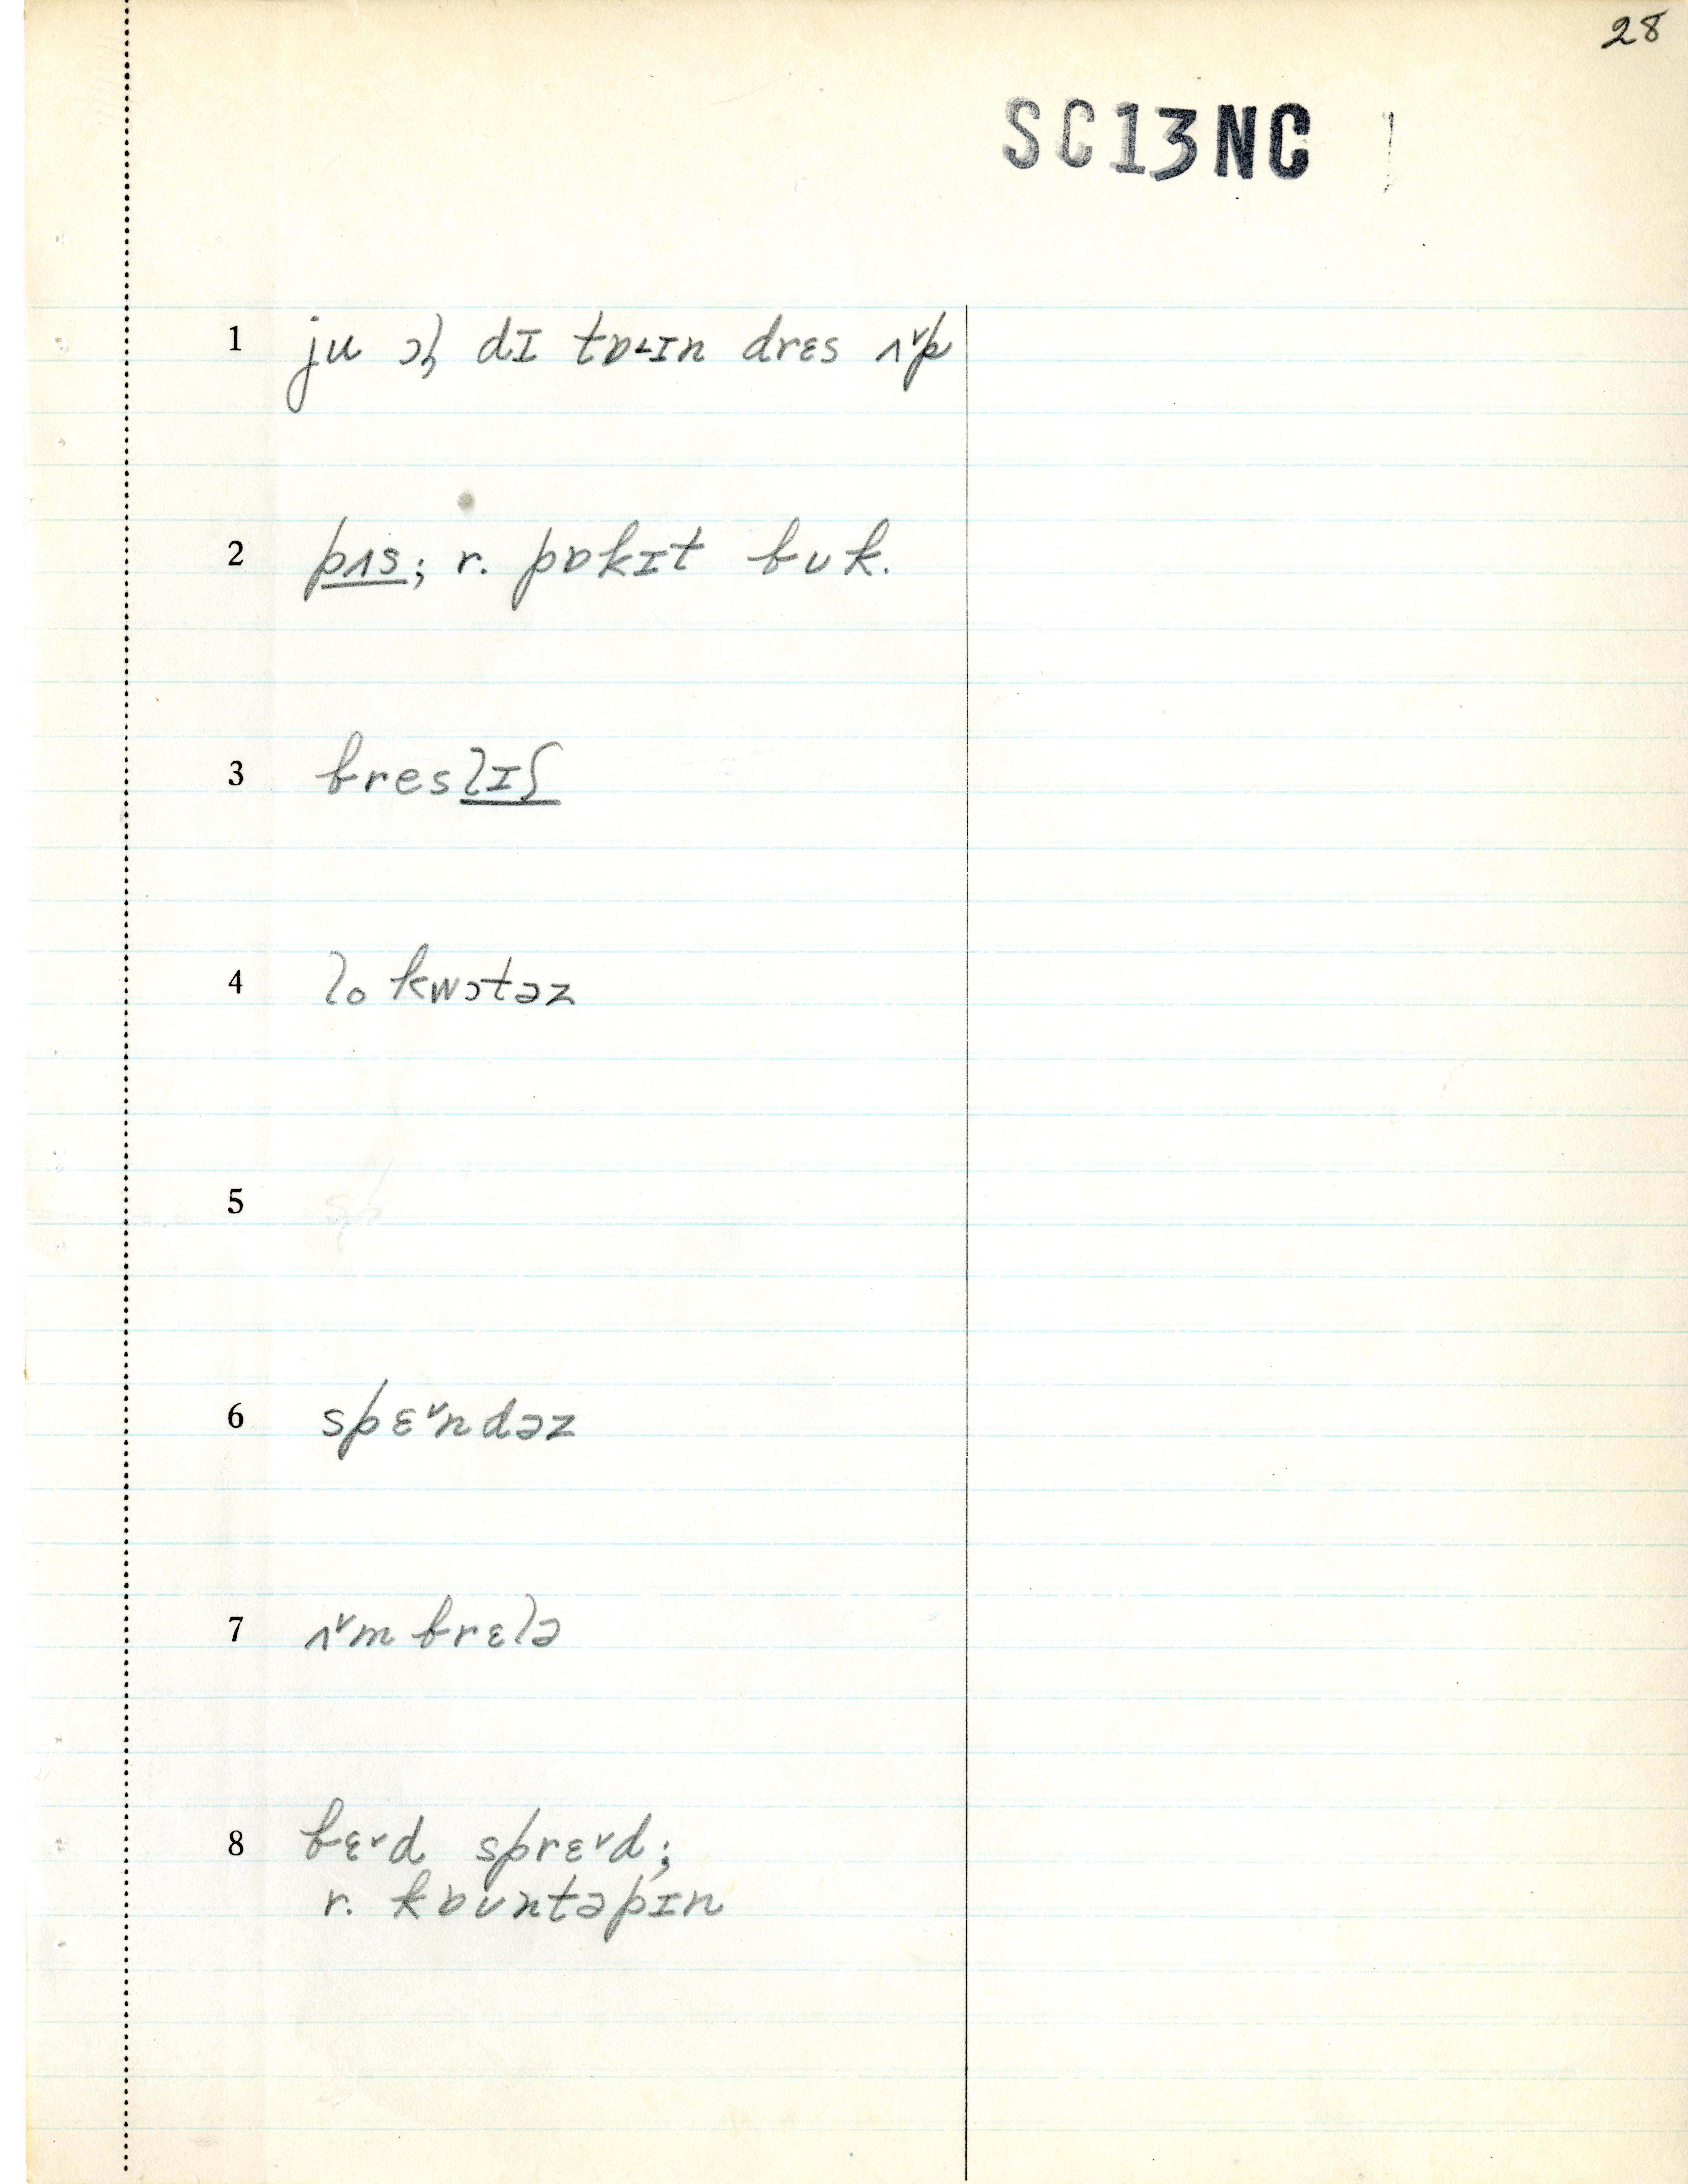 28
SC13NC
1 ju ɔɫ dɪ tɒ˔ɪn drɛs ʌ˅p
2 pʌs; r. pɒkɪt bʊk.
3 breslɪʃ
4 lo kwɔtəz
5
6 spɛ˅ndəz
7 ʌ˅mbrɛlə
8 bɛ˅d sprɛ˅d;
r. kɒʊntəpɪn